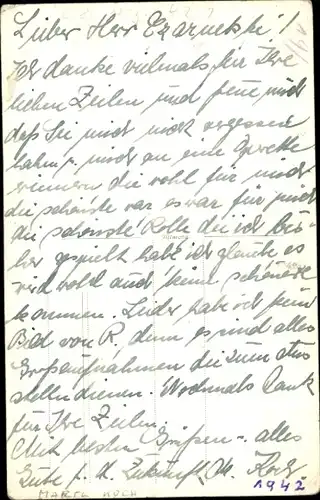 Lieber Herr Czarnetzki!
Ich danke vielmals für Ihre
lieben Zeilen und freue mich
daß Sie mich nicht vergessen
haben, mich an eine Operette
erinnern die wohl für mich
die schönste war es war für mich
die schönste Rolle die ich bis-
her gespielt habe ich glaube es
wird wohl auch keine schönste
kommen. Leider habe ich kein
Bild von R, denn es sind alles
Großaufnahmen die zum
stellen dienen. Nochmals Dank
für Ihre Zeilen.
Mit besten Grüßen – alles
Gute f. d. Zukunft M. Koch
MARTL KOCH 1942